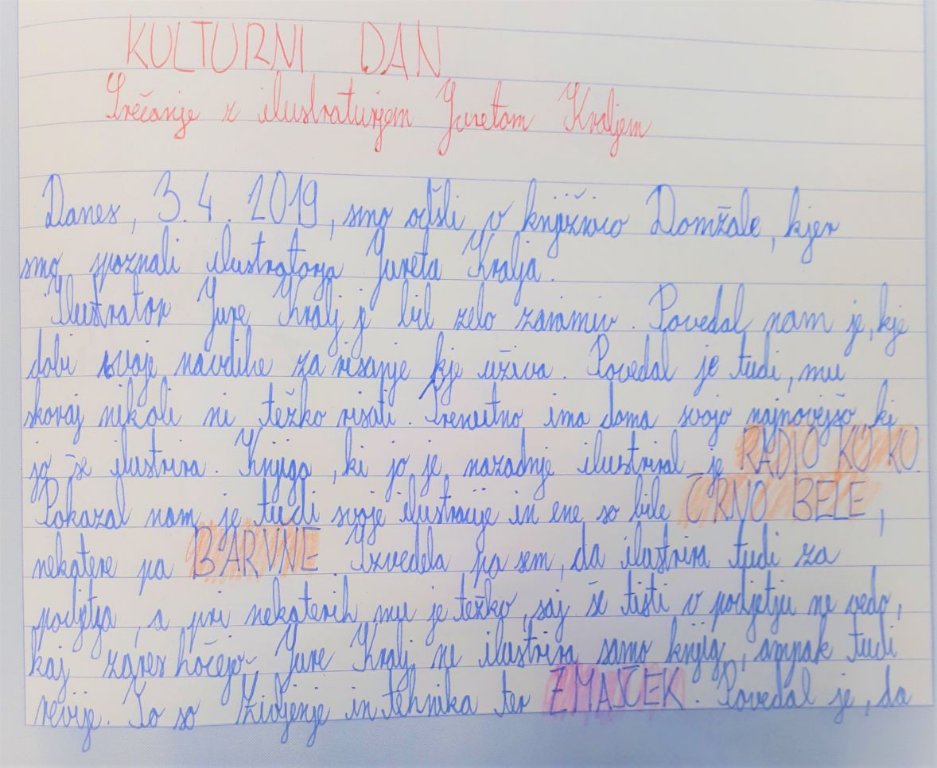 KULTURNI DAN
Srečanje z ilustratorjem Juretom Kraljem
Danes, 3.4.2019, smo odšli v knjižnico Domžale, kjer
smo spoznali ilustratorja Jureta Kralja.
Ilustrator Jure Kralj je bil zelo zanimiv. Povedal nam je, kje
dobi svoje navdihe za risanje kje uživa. Povedal je tudi, mu
skoraj nikoli ni težko risati. Trenutno ima doma svojo najnovejšo ki
jo še ilustrira. Knjiga, ki jo je nazadnje ilustriral je RADIO KO KO.
Pokazal nam je tudi svoje ilustracije in ene so bile ČRNO BELE,
nekatere pa BARVNE Izvedela pa sem, da ilustrira tudi za
podjetja, a pri nekaterih mu je težko, saj še tisti v podjetju ne vedo,
kaj zares hočejo. Jure Kralj ne ilustrira samo knjig, ampak tudi
revije. To so Življenje in tehnika ter ZMAJČEK. Povedal je, da